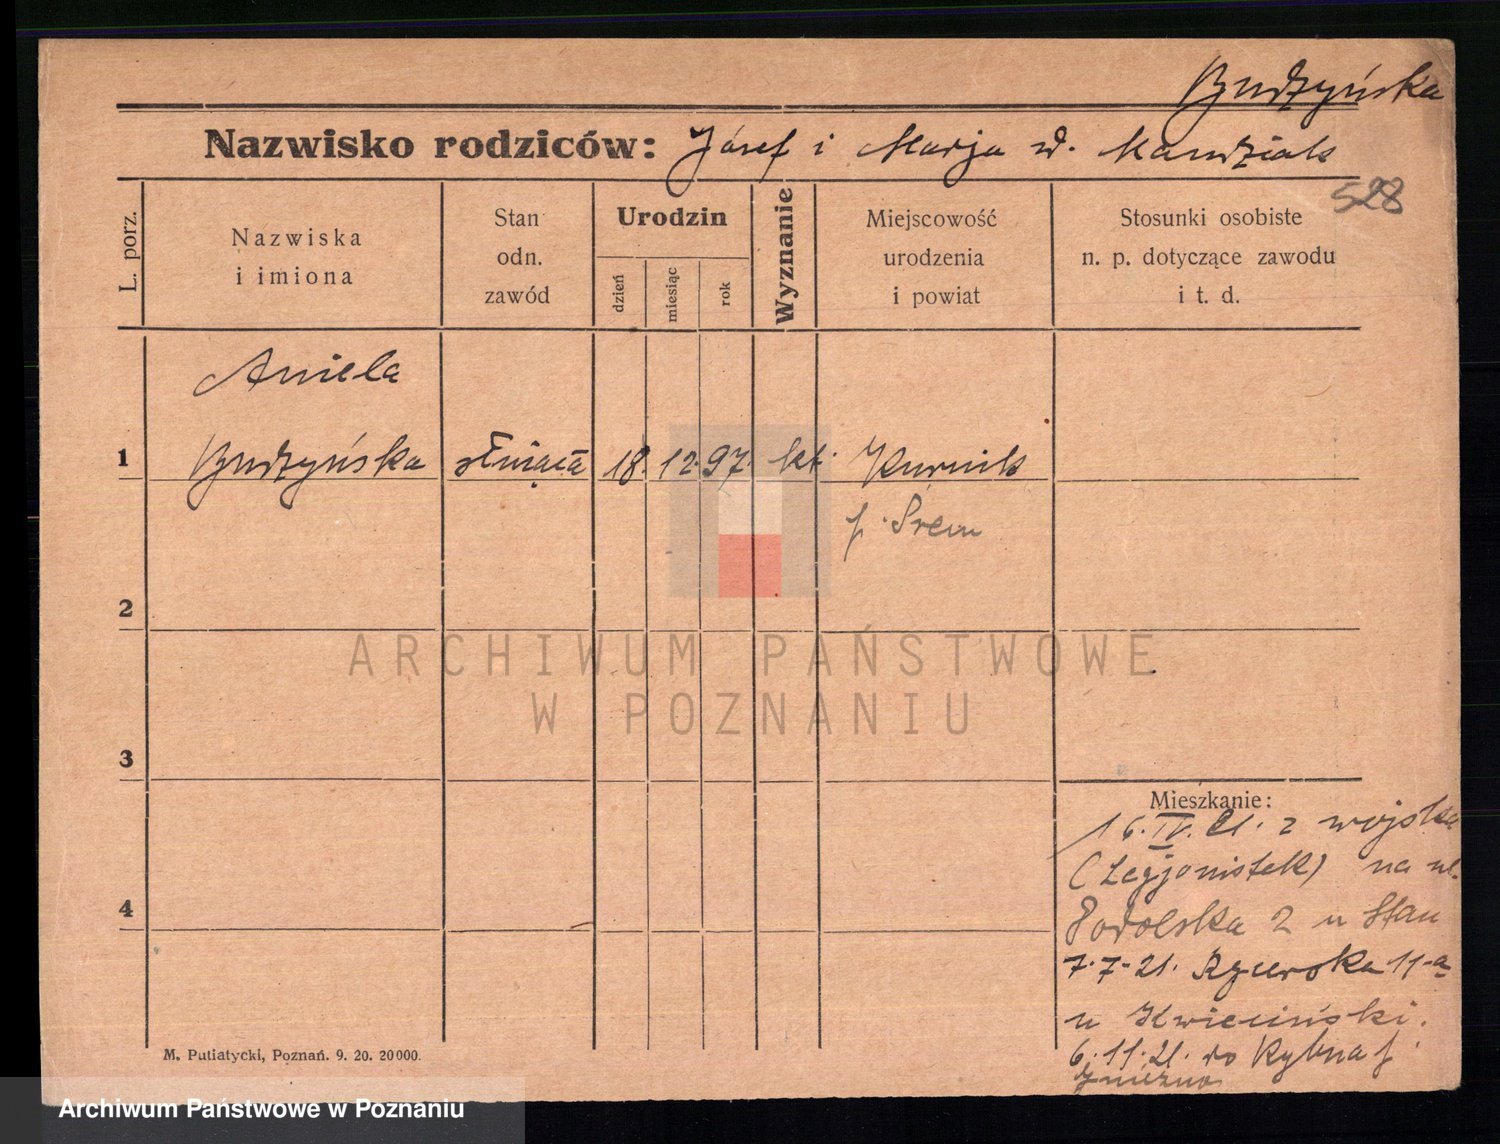 Budzyńska
Nazwisko rodziców: Józef i Marja z d. Mandziak
528
L. porz.
Nazwiska
i imiona
Stan
odn.
zawód
Urodzin
dzień
miesiąc
rok
Wyznanie
Miejscowość
urodzenia
i powiat
Stosunki osobiste
n. p. dotyczące zawodu
i t. d.
Aniela
1 Budzyńska służąca 18. 12. 97. kt. Kurnik
p. Śrem
2
3
4
Mieszkanie:
16. IV. 21. z wojska
(Legjonistek) na ul.
Podolska 2 u Stan
7. 7. 21. Rycerska 11-a
u Kwieciński.
6. 11. 21. do Rybna p.
Gniezno
M. Putiatycki, Poznań. 9. 20. 20000.
ARCHIWUM PAŃSTWOWE
W POZNANIU
Archiwum Państwowe w Poznaniu